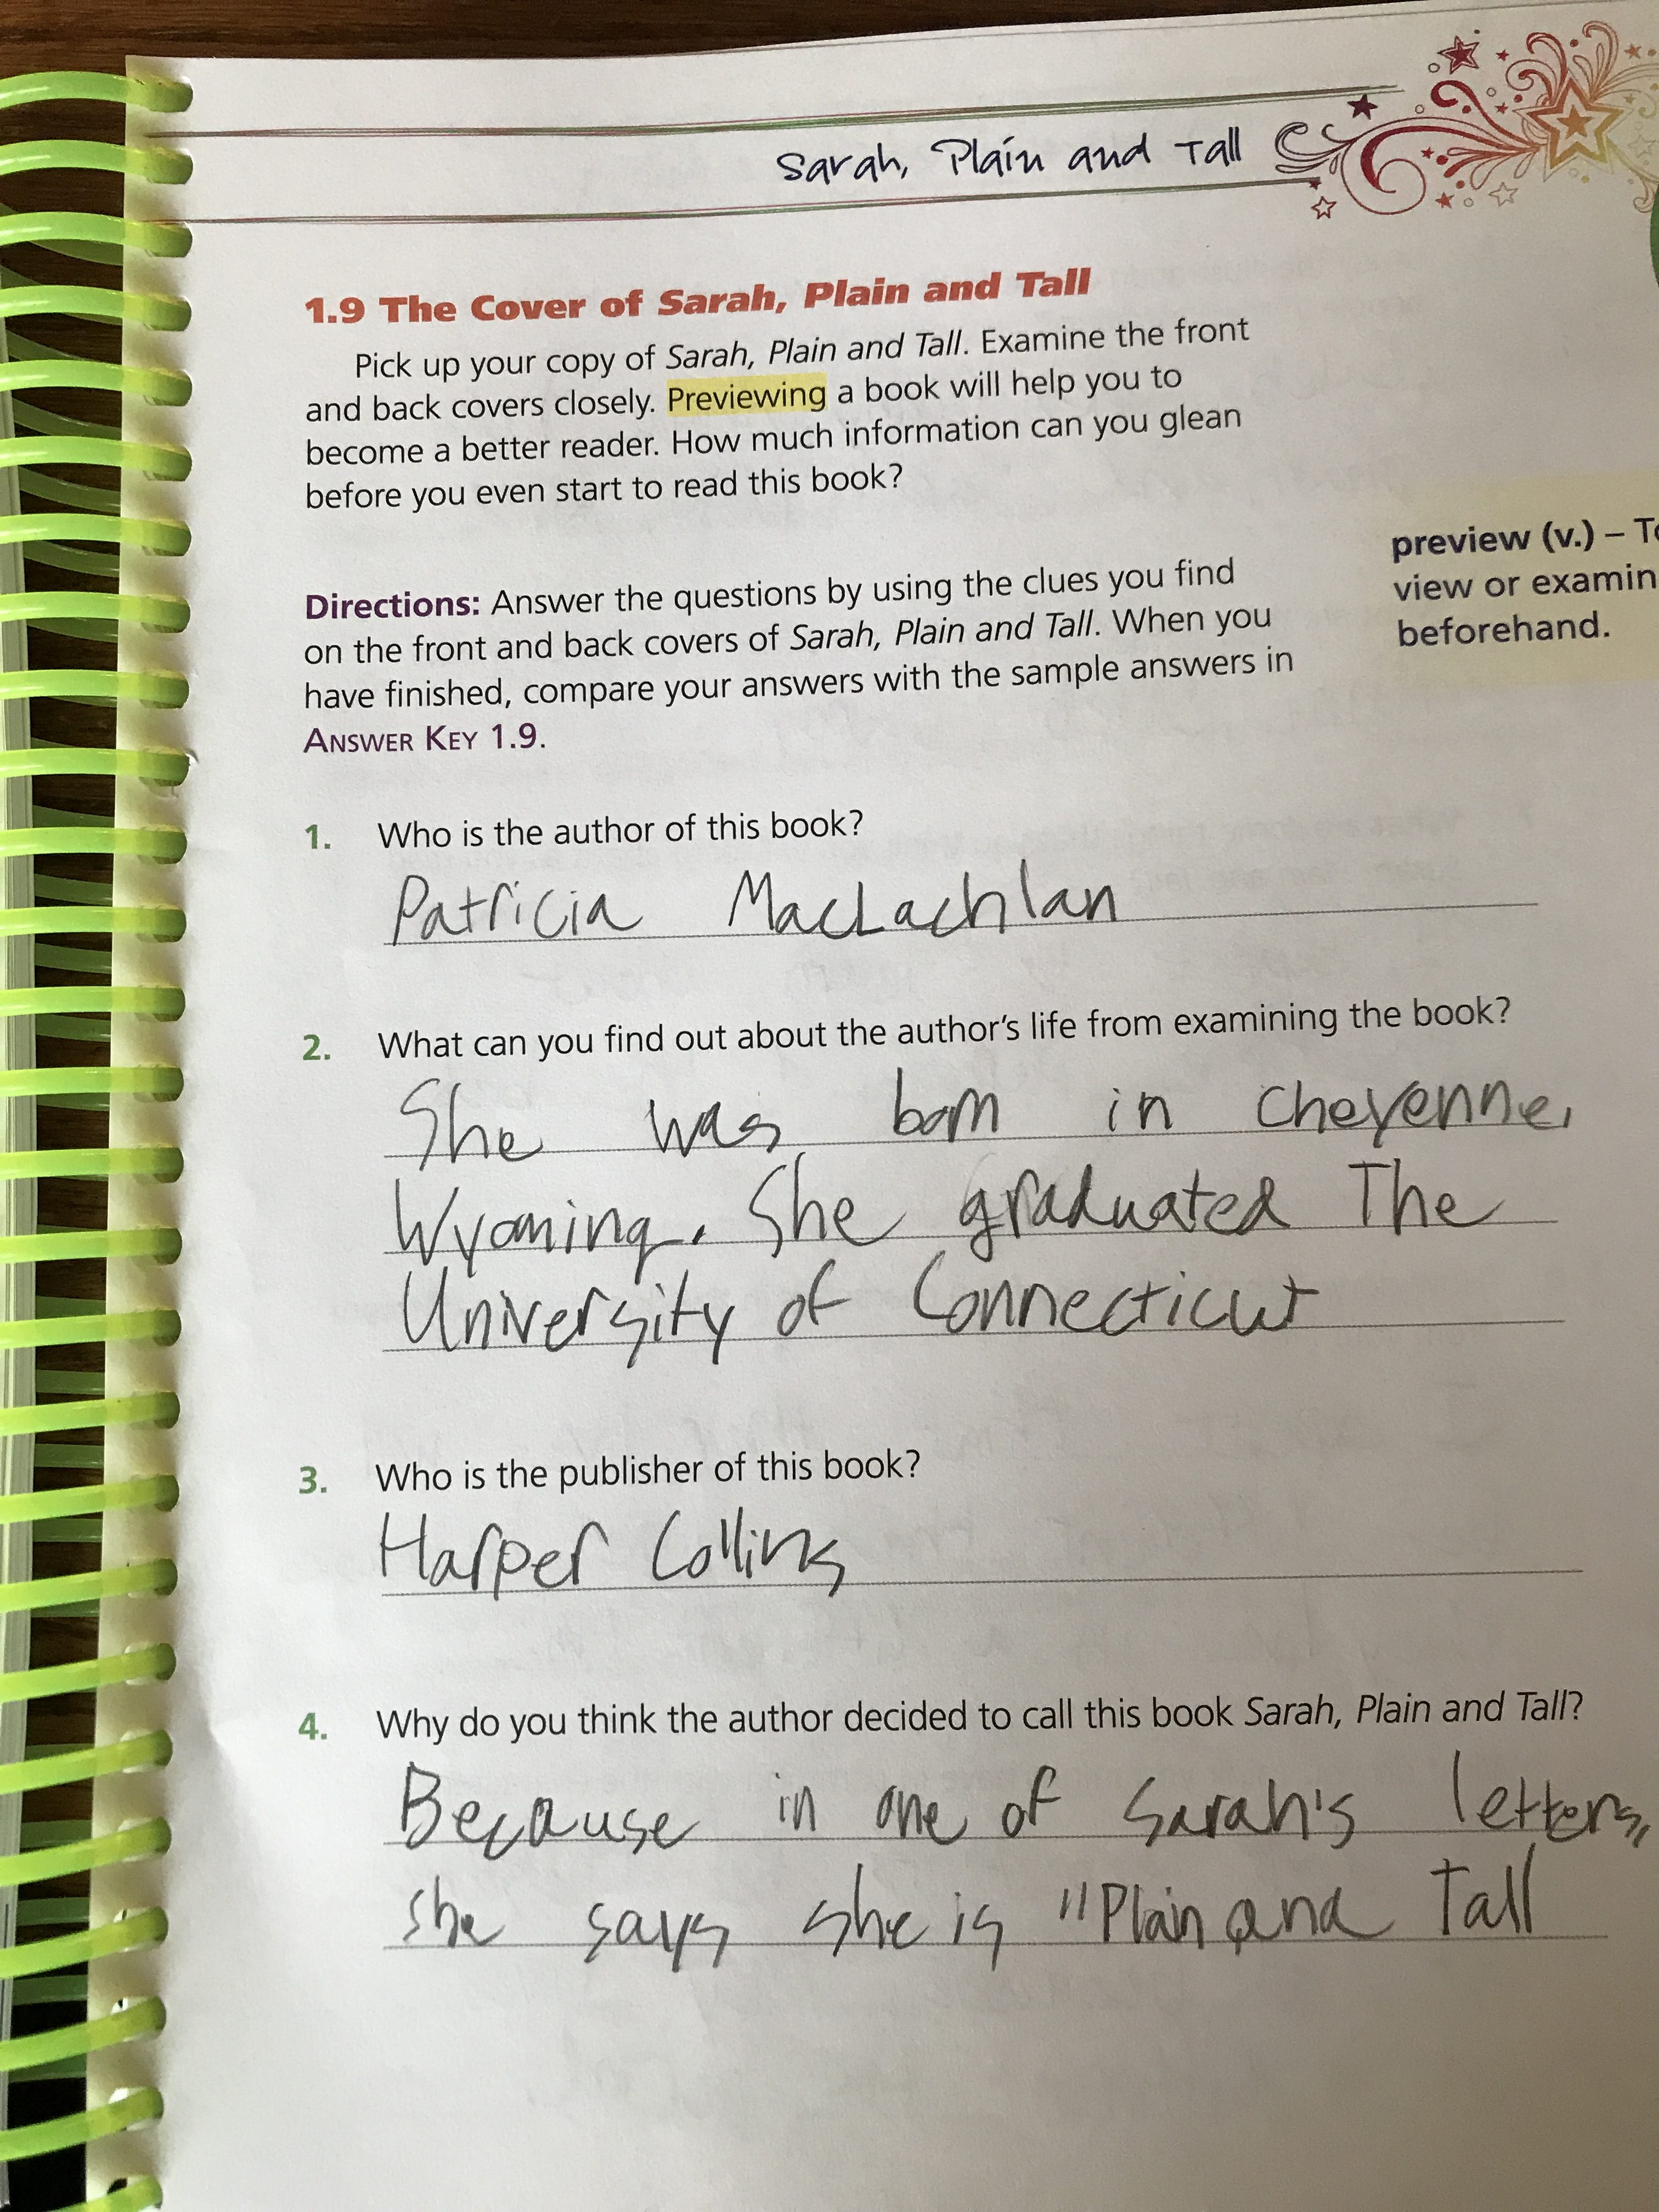 Sarah, Plain and Tall
1.9 The Cover of Sarah, Plain and Tall
Pick up your copy of Sarah, Plain and Tall. Examine the front
and back covers closely. Previewing a book will help you to
become a better reader. How much information can you glean
before you even start to read this book?
preview (v.) – To
view or examin
beforehand.
Directions: Answer the questions by using the clues you find
on the front and back covers of Sarah, Plain and Tall. When you
have finished, compare your answers with the sample answers in
ANSWER KEY 1.9.
1. Who is the author of this book?
Patricia MacLachlan
2. What can you find out about the author's life from examining the book?
She was born in Cheyenne,
Wyoming. She graduated The
University of Connecticut
3. Who is the publisher of this book?
Harper Collins
4. Why do you think the author decided to call this book Sarah, Plain and Tall?
Because in one of Sarah's letters,
she says she is "Plain and Tall